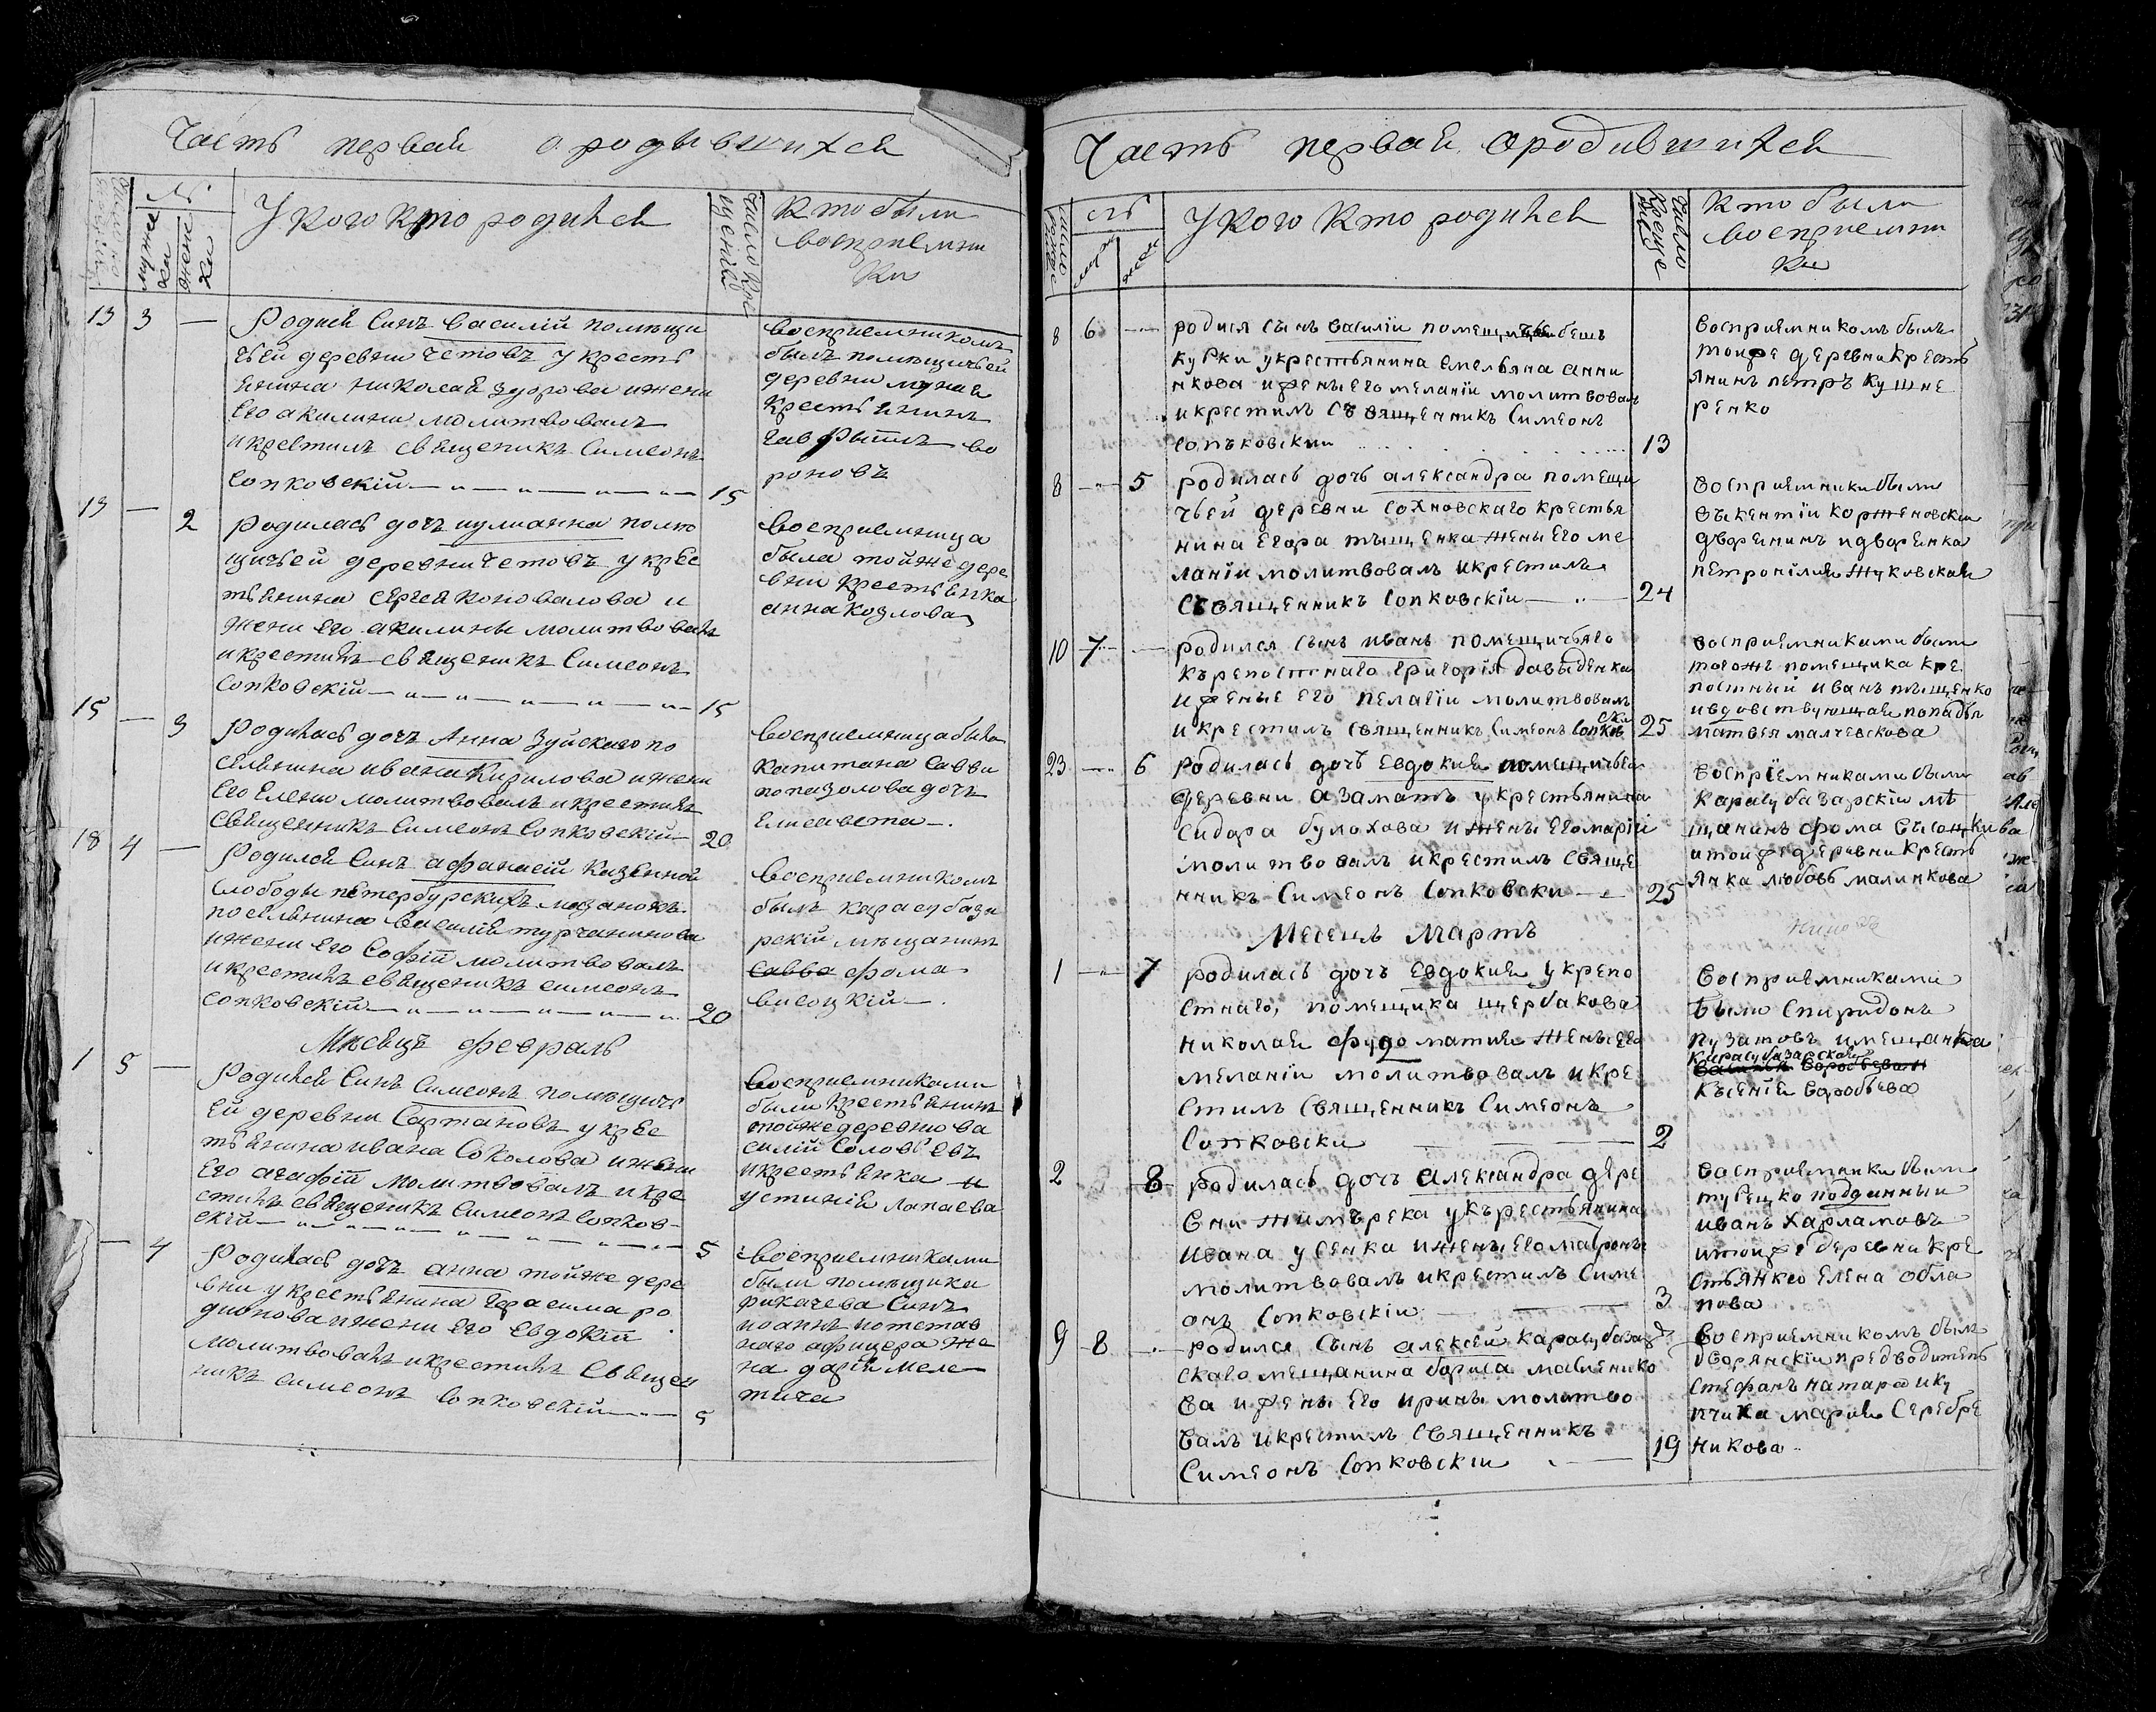 Часть первая о родившихся
Число рожден
№
мужес
ка
женс
ка
У кого кто родился
число кре
щения
кто были
восприемни
ки
13 3 — Родися Синъ василій помѣщи
чьей деревни Четовъ у кресть
янина николая здорова и жени
Его акилини молитвовалъ
и крестилъ священикъ Симеонъ
Сопковскій 15
восприемникомъ
былъ помѣщичьей
деревни
крестьянинъ
во
роновъ
13 — 2 родилась дочь иулианна помѣ
щичьей деревни Четовъ у крес
тьянина сергея коновалова и
жени Его акилины молитвовалъ
и крестилъ священикъ Симеонъ
Сопковскій 15
восприемница
была тойже дере
вни крестьянка
анна козлова
15 — 3 Родилась дочь Анна Зуйскаго по
селянина ивана Кирилова и жени
Его Елени молитвовалъ и крестилъ
священникъ Симеонъ Сопковскій 20
восприемница была
капитана Савви
попазолова дочь
Елисавета
18 4 — Родился Синъ афанасій казенной
слободы петербурскихъ мазанокъ
поселянина Василія турчанинова
и жени Его Софіи молитвовалъ
и крестилъ священикъ симеонъ
сопковскій 20
восприемникомъ
былъ карасубаза
рскій мѣщанинъ
Савва фома
висоцкій
Мѣсяцъ февраль
1 5 — Родился Синъ Симеонъ помѣщичь
ей деревни Сартановъ у крес
тьянина ивана Соколова и жени
Его агафіи молитвовалъ и кре
стилъ священикъ Симеонъ Сопков
скій 5
восприемниками
были крестьянинъ
тойже деревни ва
силій Соловьевъ
и крестьянка и
устинія Лопаева
— 4 Родилась дочь анна тойже дере
вни у крестьянина Герасима ро
дионова и жени Его Евдокіи
молитвовалъ и крестилъ Священ
никъ симеонъ Сопковскій 5
восприемниками
были помѣщика
рикачева Синъ
иоаннъ и отстав
наго афицера же
на дарія меле
тича
Часть первая о родившихся
число
рожде
№
муже
женск
У кого кто родился
число
креще
ния
кто были
восприемни
ки
8 6 — родися сынъ василіи помещичье бешъ
курки у крестьянина емельяна анни
нкова и жены его меланіи молитвовалъ
и крестилъ священникъ Симеонъ
Сопъковскии 13
восприемникомъ былъ
тойже деревни кресть
янинъ петръ кушне
ренко
8 — 5 родилась дочь александра помещи
чьей деревни Сохновскаго крестья
нина Егора тыщенка жены Его ме
ланіи молитвовалъ и крестилъ
Священникъ Сопковскіи 24
восприемники были
въкентіи корженовскіи
дворенинъ и дворенка
петронілия жуковская
10 7 — родился сынъ иванъ помещичьяго
къре­постнаго григорія давыденка
и жены его пелагіи молитвовалъ
и крестилъ священникъ Симеонъ Сопков
ски 25
восприемниками были
тогожъ помещика кре
постный иванъ тыщенко
и вдовствующая попадья
матвея малчевскова
23 — 6 родилась дочь Евдокия помещичьей
деревни азаматъ у крестьянина
Сидора булохова и жены Его маріи
молитвовалъ и крестилъ Свяще
нникъ Симеонъ Сопковски 25
воспріемниками были
карасубазарскіи мѣ
щанинъ фома Высоцки
и тойже деревни кресть
янка любовь малинкова
Месецъ Мартъ
1 — 7 родилась дочь Евдокия у крепо
стнаго, помещика щербакова
николая жены Его
меланіи молитвовалъ и кре
стилъ Священникъ Симеонъ
Сопковски 2
Восприемниками
были Спиридонъ
пузатовъ и мещанка
карасубазарская
Воробьева
къ­сенія воробьева
2 8 родилась дочь александра дере
вни у къ­рестьянина
ивана усенка и жены Его матроны
молитвовалъ и крестилъ Симе
онъ Сопковскіи 3
восприемники были
турецко подданныи
иванъ харламовъ
и тойже деревни кре
стьянкю Елена обла
пова
9 8 — родился Сынъ алексеи карасубазар
скаго мещанина бориса масленико
ва и жены Его ирины молитво
валъ и крестилъ Священникъ
Симеонъ Сопковскіи 19
восприемникомъ былъ
дворянскіи предводитель
Стефанъ натара и ку
пчиха мария Серебре
никова